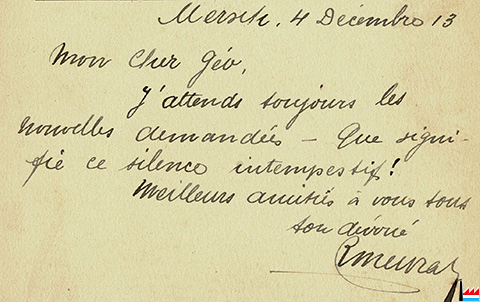 Mersch, 4 Décembre 13
Mon Cher Géo,
J'attends toujours les
nouvelles demandées – Que signi-
fie ce silence intempestif!
Meilleurs amitiés à vous tous
ton dévoué